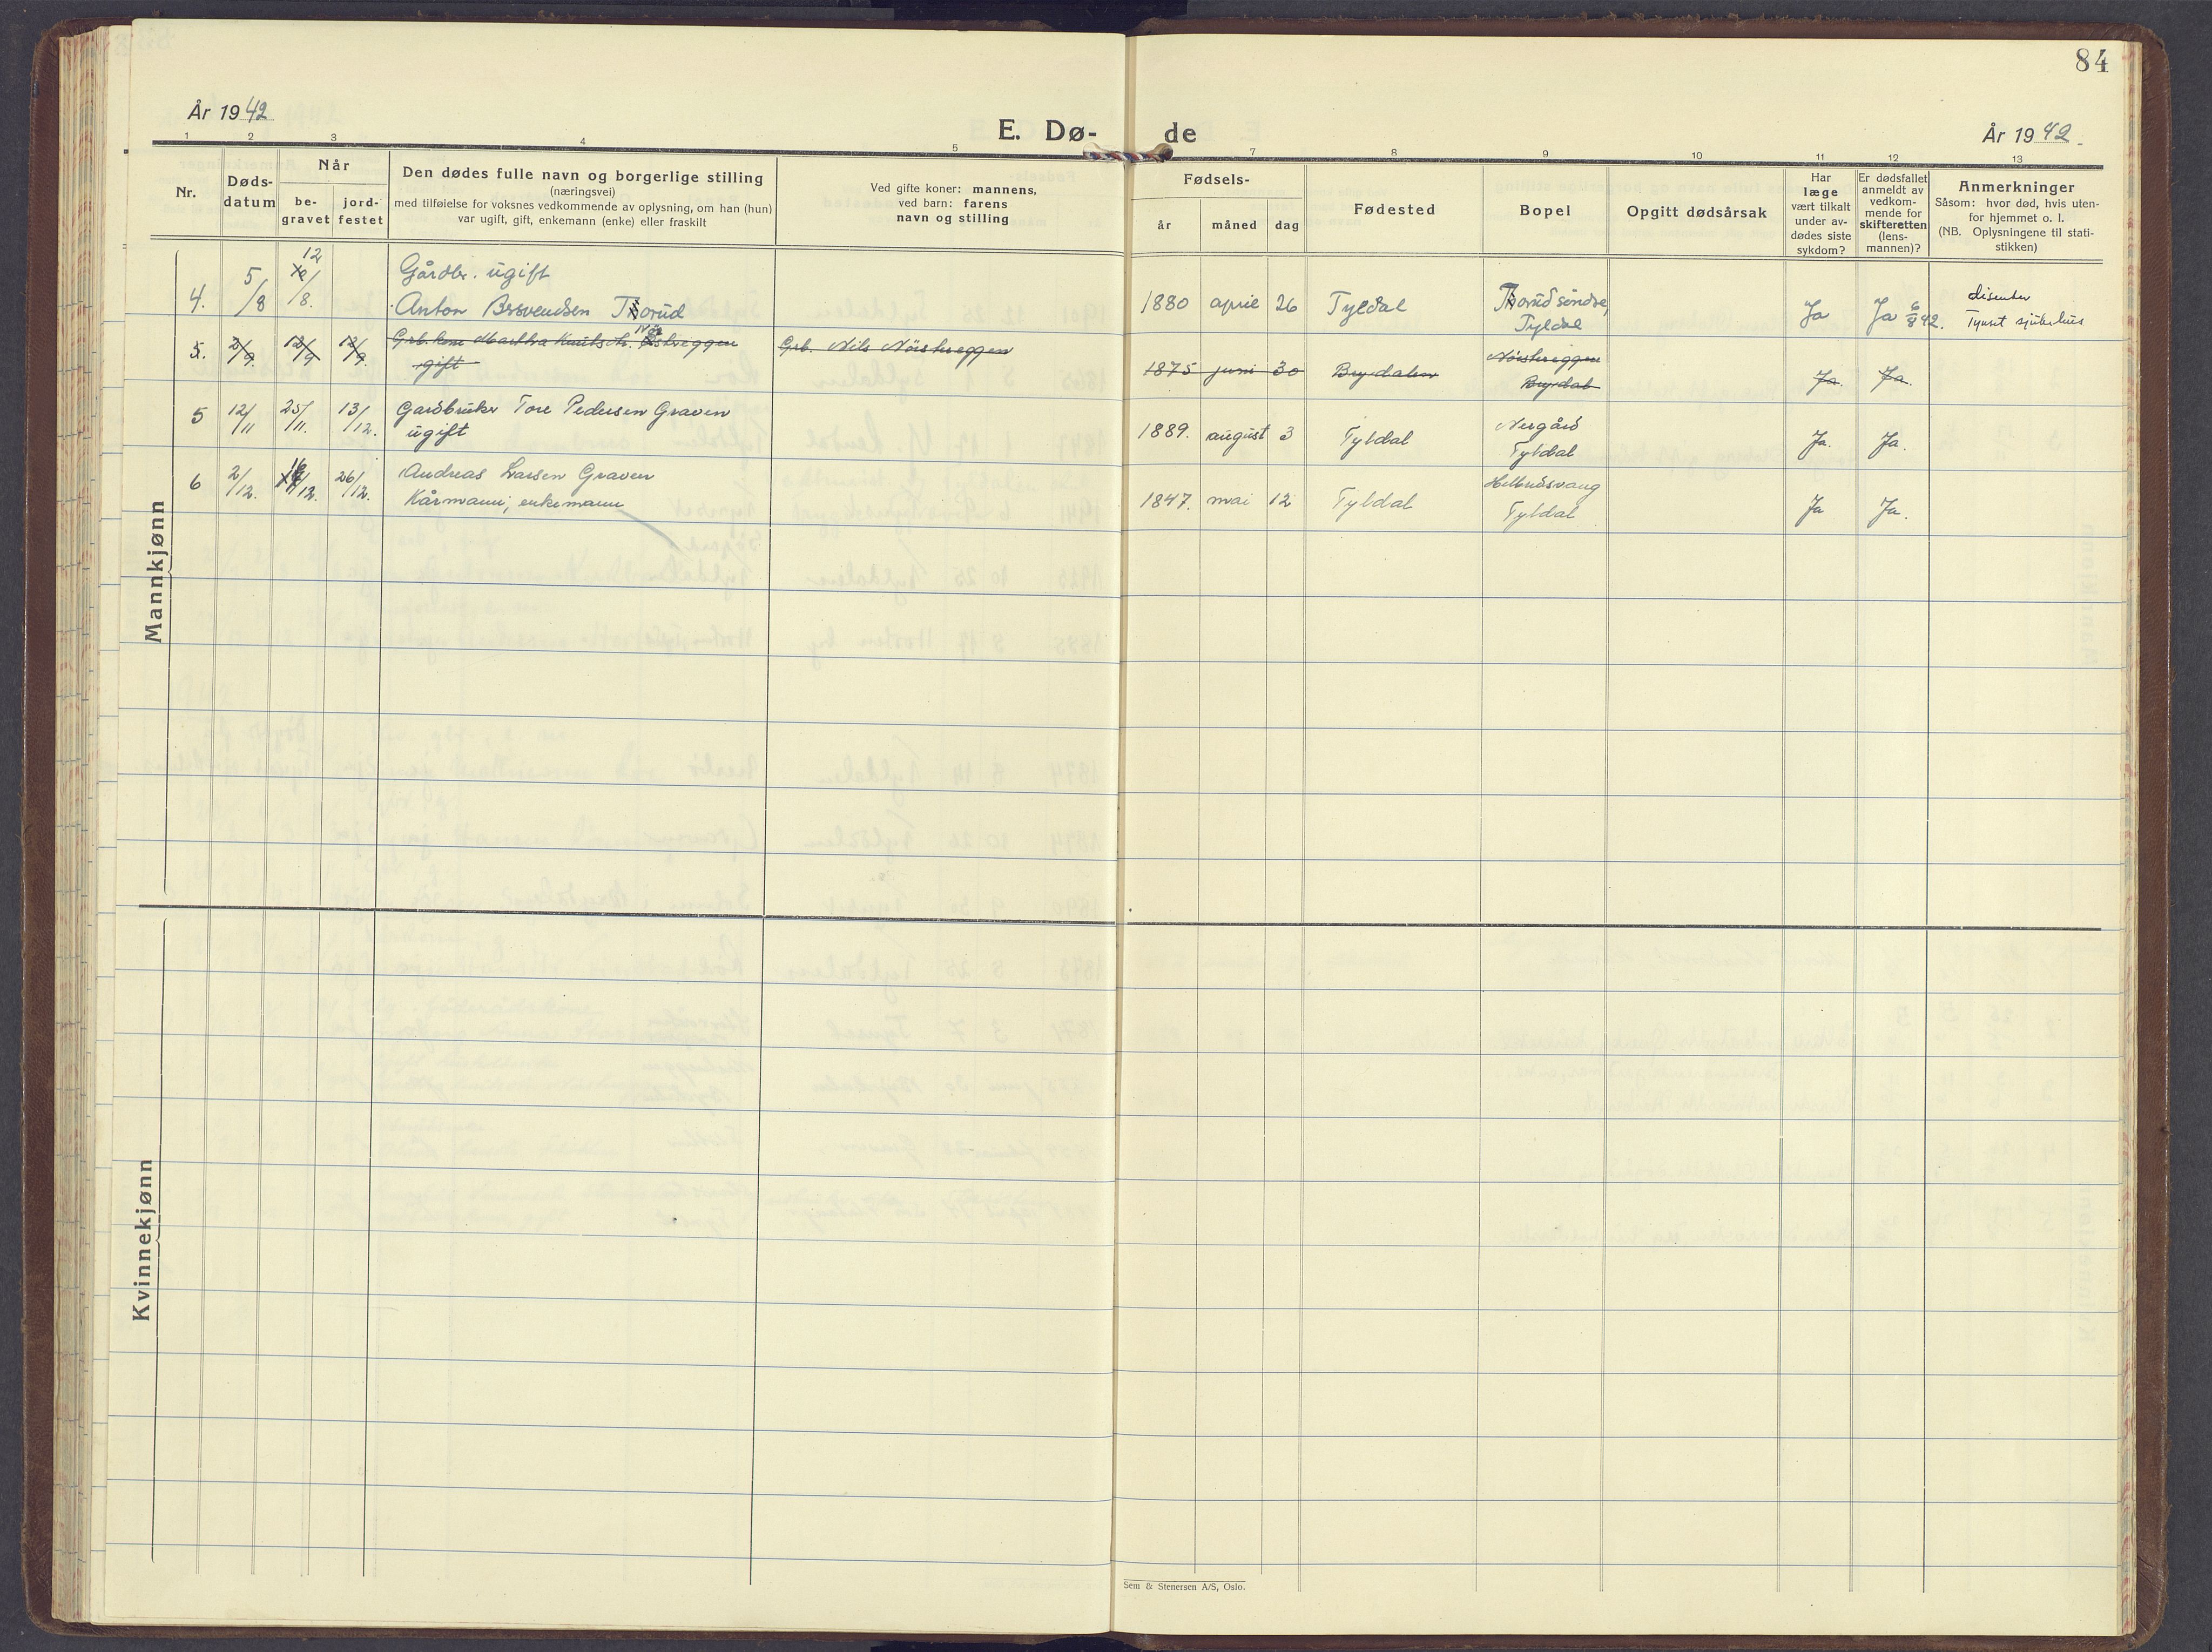 84
År 1942
E. Dø-
de
År 1942
1 2 3 4 5 7 8 9 10 11 12 13
Nr.
Døds-
datum
Når
be-
gravet
jord-
festet
Den dødes fulle navn og borgerlige stilling
(næringsvei)
med tilføielse for voksnes vedkommende av oplysning, om han (hun)
var ugift, gift, enkemann (enke) eller fraskilt
Ved gifte koner: mannens,
ved barn: farens
navn og stilling
Fødsels-
år
måned
dag
Fødested
Bopel
Opgitt dødsårsak
Har
læge
vært tilkalt
under av-
dødes siste
sykdom?
Er dødsfallet
anmeldt av
vedkom-
mende for
skifteretten
(lens-
mannen)?
Anmerkninger
Såsom: hvor død, hvis uten-
for hjemmet o. l.
(NB. Oplysningene til stati-
stikken)
Mannkjønn
4. 5/8 12/8. Gårdbr. ugift
Anton Thorud 1880 april 26 Tyldal
Tyldal
Ja Ja 6/8 42.
disenter
Tynset sjukehus
5. 2/9. 12/9 12/9. Grb. kone Martha
gift
Grb. Nils Nöistreggen
1875 juni 30 Brydalen
Nöistreggen
Brydal
Ja. Ja.
5 12/11 25/11. 13/12. Gardbruker Tore Pedersen Graven
ugift
1889. august 3 Tyldal
Nergård
Tyldal
Ja. Ja.
6 2/12. 26/12. Andreas Larsen Graven
Kårmann, enkemann
1847. mai 12 Tyldal
Tyldal
Ja Ja.
Kvinnekjønn
Sem & Stenersen A/S, Oslo.